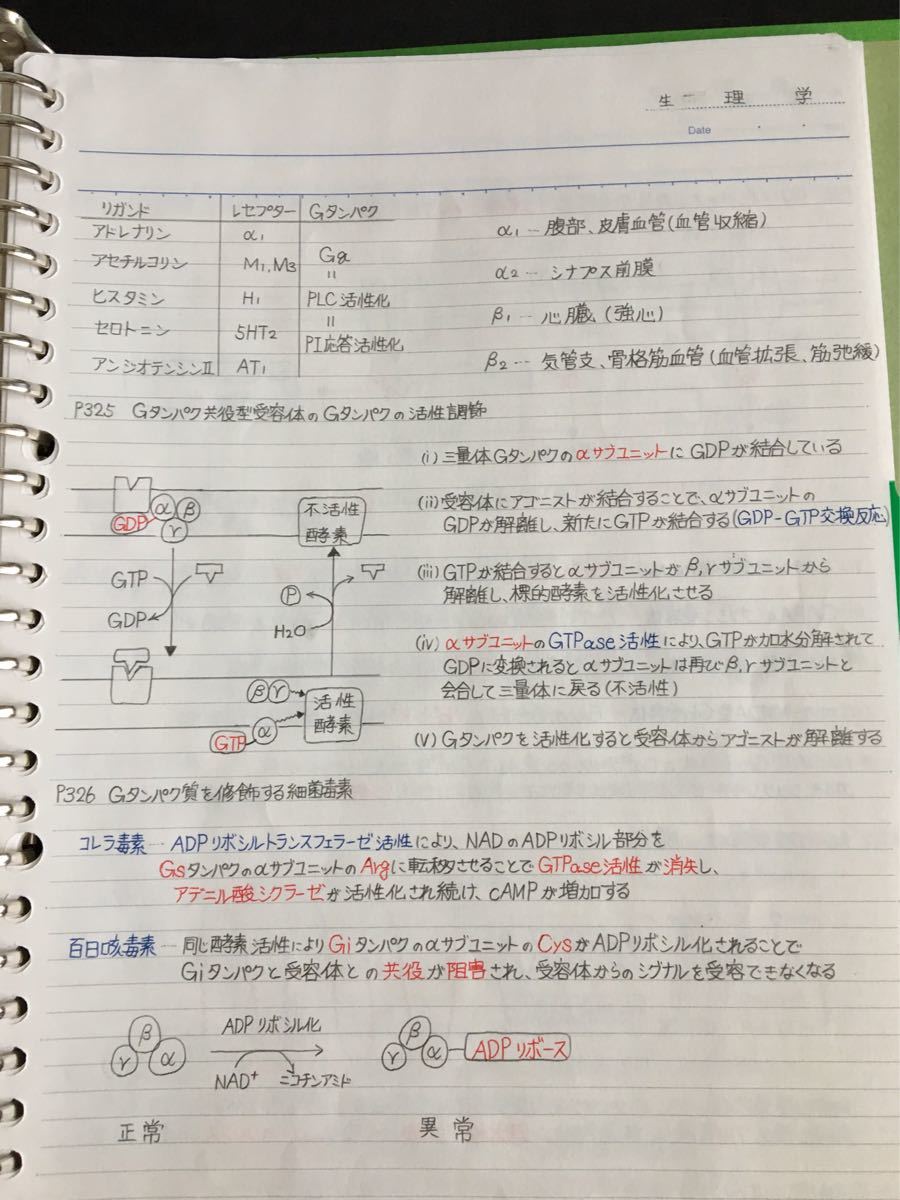 生理学
Date
リガンド レセプター Gタンパク
アドレナリン α1
アセチルコリン M1, M3 Gq
=
ヒスタミン H1 PLC活性化
=
セロトニン 5HT2 PI応答活性化
アンジオテンシンⅡ AT1
α1…腹部、皮膚血管(血管収縮)
α2…シナプス前膜
β1…心臓(強心)
β2…気管支、骨格筋血管(血管拡張、筋弛緩)
P325 Gタンパク共役型受容体のGタンパクの活性調節
α β
γ
GDP
GTP
GDP
不活性
酵素
P
H2O
β γ
α
GTP
活性
酵素
(i) 三量体Gタンパクのαサブユニットに GDPが結合している
(ii) 受容体にアゴニストが結合することで、αサブユニットの
GDPが解離し、新たにGTPが結合する(GDP-GTP交換反応)
(iii) GTPが結合するとαサブユニットがβ,γサブユニットから
解離し、標的酵素を活性化させる
(iv) αサブユニットのGTPase活性により、GTPが加水分解されて
GDPに変換されるとαサブユニットは再びβ,γサブユニットと
会合して三量体に戻る(不活性)
(V) Gタンパクを活性化すると受容体からアゴニストが解離する
P326 Gタンパク質を修飾する細菌毒素
コレラ毒素…ADPリボシルトランスフェラーゼ活性により、NADのADPリボシル部分を
Gsタンパクのαサブユニットの Argに転移させることで GTPase活性が消失し、
アデニル酸シクラーゼが活性化され続け、cAMPが増加する
百日咳毒素…同じ酵素活性により Giタンパクのαサブユニットの CysがADPリボシル化されることで
Giタンパクと受容体との共役が阻害され、受容体からのシグナルを受容できなくなる
β
γ α
ADPリボシル化
NAD+ ニコチンアミド
β
γ α ADPリボース
正常 異常